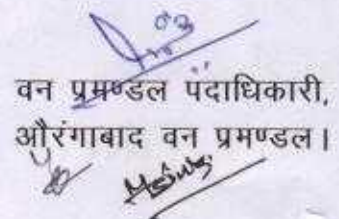 वन प्रमण्डल पदाधिकारी,
औरंगाबाद वन प्रमण्डल।